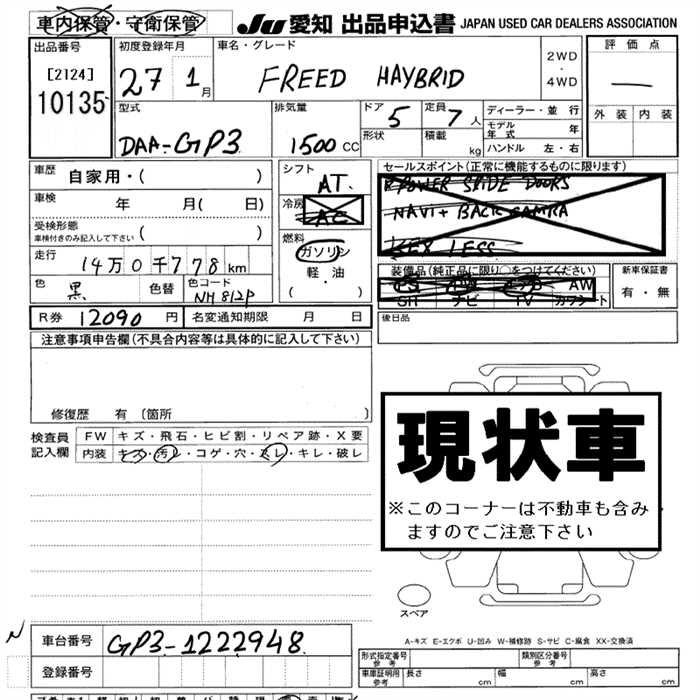 車内保管・守衛保管
JU 愛知 出品申込書 JAPAN USED CAR DEALERS ASSOCIATION
出品番号
[2124]
10135
初度登録年月
27 1 月
車名・グレード
FREED HAYBRID
2WD
・
4WD
評価点
—
外装 内装
型式
DAA-GP3
排気量
1500 CC
ドア 5
形状
定員 7 人
積載 kg
ディーラー・並行
モデル年式 年
ハンドル 左・右
車歴 自家用・( )
車検 年 月( 日)
受検形態
車検付きのみ記入して下さい ( )
走行 14万0千778km
色 黒 色替 色コード NH812P
シフト AT.
冷房 AC
燃料
ガソリン
軽・油
( ・ )
セールスポイント(正常に機能するものに限ります)
POWER SLIDE DOORS
NAVI + BACK CAMRA
KEY LESS
装備品(純正品に限り○をつけてください)
AW
SR ナビ TV カワシート
新車保証書
有・無
R券 12090 円 名変通知期限 月 日
後日品
注意事項申告欄(不具合内容等は具体的に記入して下さい)
修復歴 有 (箇所 )
検査員
記入欄
FW キズ・飛石・ヒビ割・リペア跡・X要
内装 キズ・汚レ・コゲ・穴・スレ・キレ・破レ
現状車
※このコーナーは不動車も含み
ますのでご注意下さい
スペア
A-キズ E-エクボ U-凹み W-補修跡 S-サビ C-腐食 XX-交換済
N
車台番号 GP3-1222948
登録番号
形式指定番号
参考
類別区分番号
参考
車庫証明用
参考
長さ cm 幅 cm 高さ cm